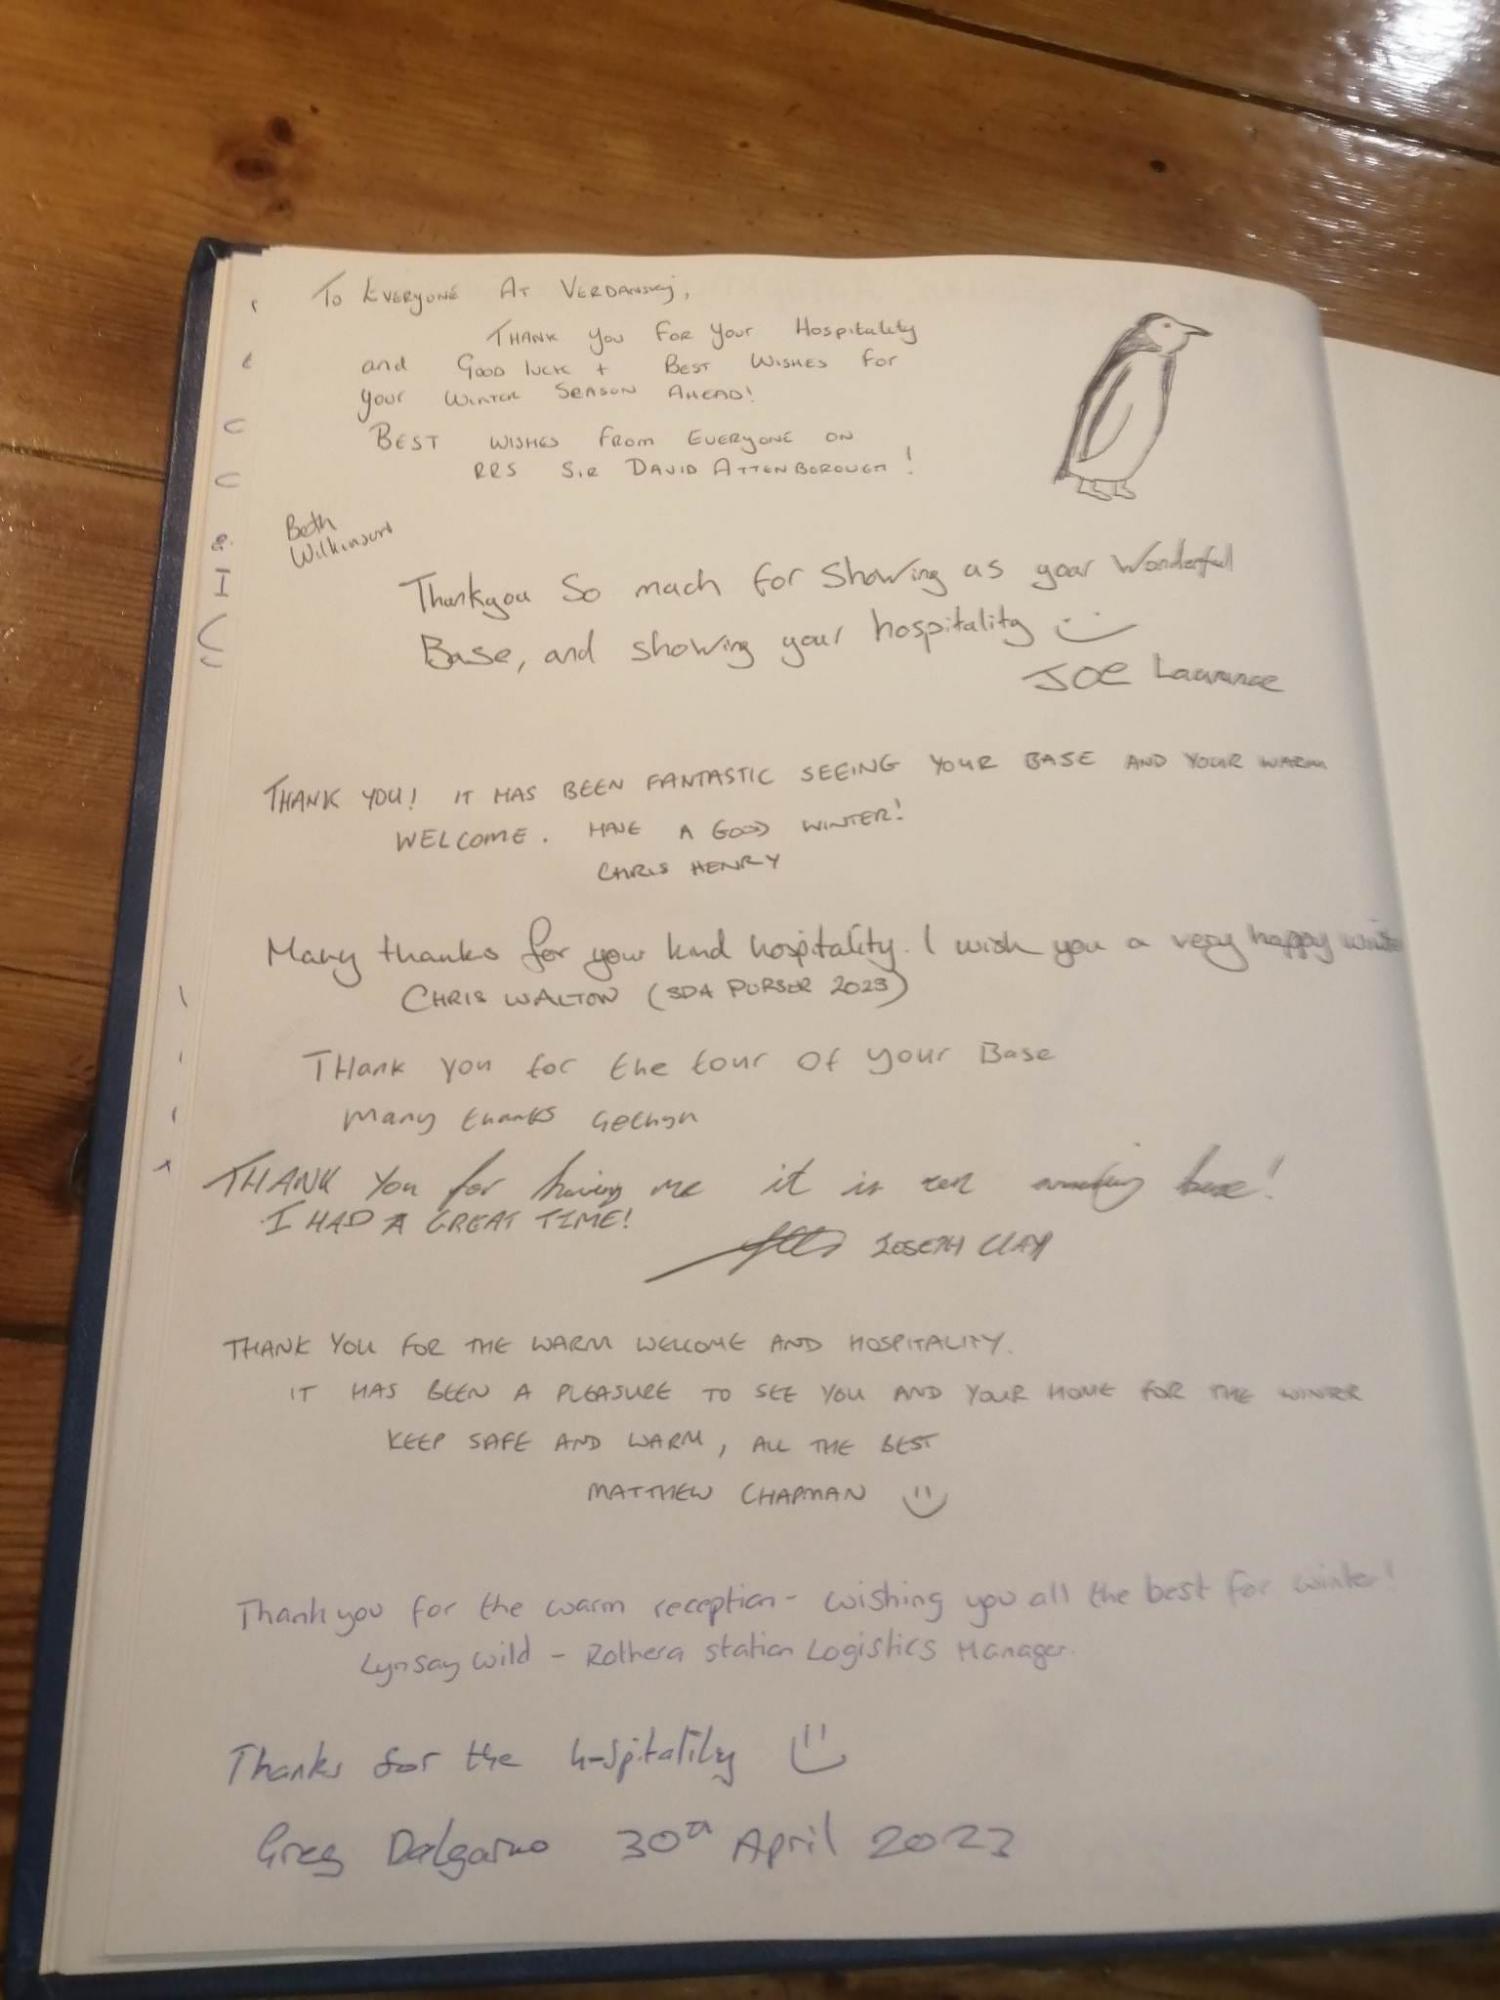 To Everyone At Verdansky,
Thank you For your Hospitality
and Good luck + Best Wishes for
your Winter Season Ahead!
Best wishes from Everyone on
RRS Sir David Attenborough!
Beth
Wilkinson
Thankyou So much for Showing us your Wonderful
Base, and showing your hospitality
JOE Lawrance
THANK YOU! IT HAS BEEN FANTASTIC SEEING YOUR BASE AND YOUR WARM
WELCOME. HAVE A GOOD WINTER!
CHRIS HENRY
Many thanks for your kind hospitality. I wish you a very happy winter
CHRIS WALTON (SDA PURSER 2023)
THank you for the tour Of your Base
Many thanks Gethyn
THANK You for having me it is an amazing base!
I HAD A GREAT TIME!
JOSEPH CLAY
THANK YOU FOR THE WARM WELCOME AND HOSPITALITY.
IT HAS BEEN A PLEASURE TO SEE YOU AND YOUR HOME FOR THE WINTER
KEEP SAFE AND WARM, ALL THE BEST
MATTHEW CHAPMAN
Thankyou for the warm reception - wishing you all the best for winter!
Lynsay Wild - Rothera Station Logistics Manager.
Thanks for the hospitality
Greg Dalgarno 30th April 2023